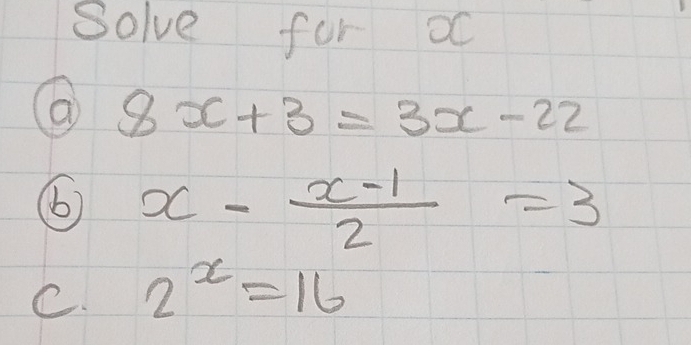 Solve for x
(a) 8x + 3 = 3x - 22
(b) x - \frac{x-1}{2} = 3
c. 2^x = 16